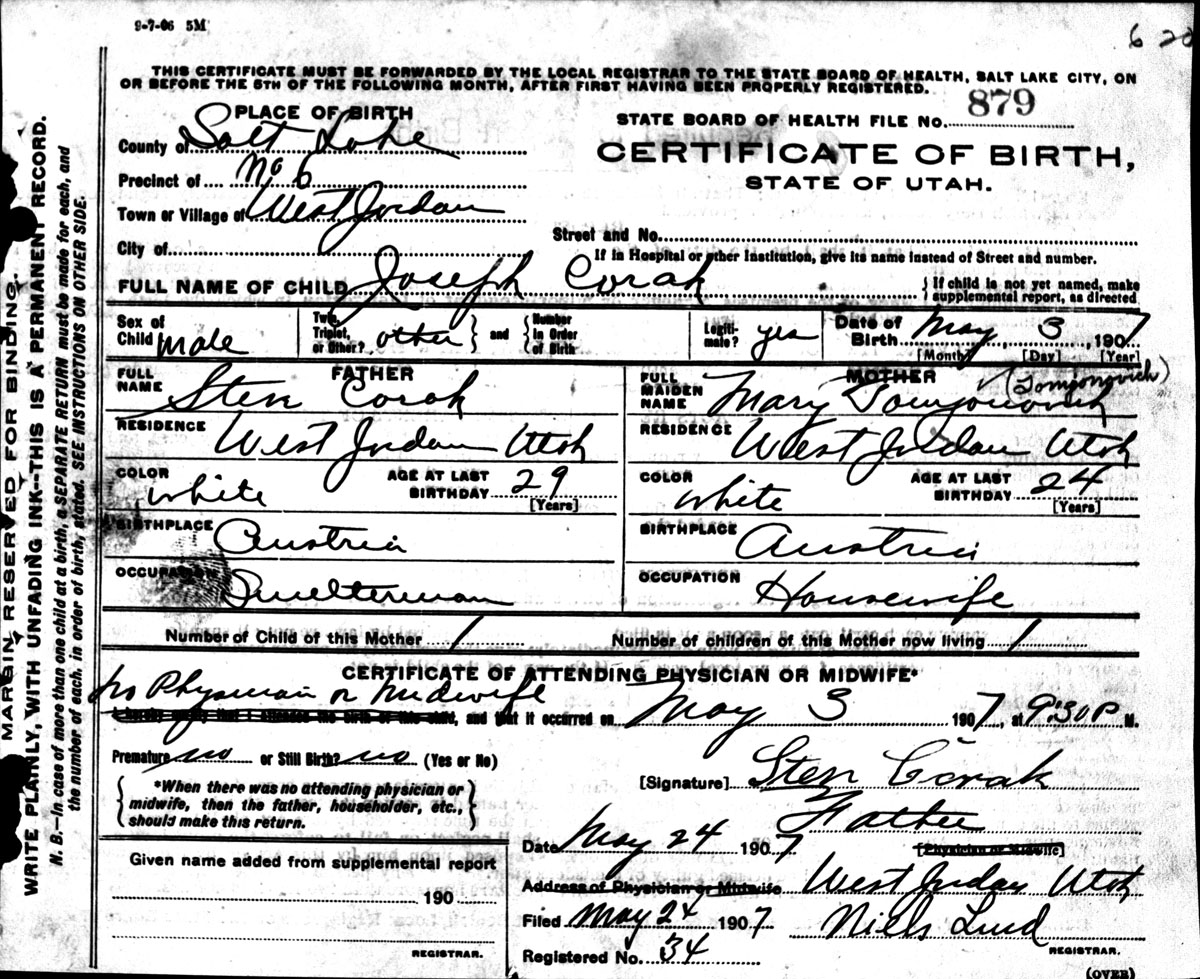 9-7-06 5M
6 20
THIS CERTIFICATE MUST BE FORWARDED BY THE LOCAL REGISTRAR TO THE STATE BOARD OF HEALTH, SALT LAKE CITY, ON
OR BEFORE THE 5TH OF THE FOLLOWING MONTH, AFTER FIRST HAVING BEEN PROPERLY REGISTERED.
PLACE OF BIRTH
STATE BOARD OF HEALTH FILE No. 879
County of Salt Lake
CERTIFICATE OF BIRTH,
STATE OF UTAH.
Precinct of No 6
Town or Village of West Jordan
City of
Street and No.
If in Hospital or other Institution, give its name instead of Street and number.
FULL NAME OF CHILD Joseph Corak
} If child is not yet named, make
supplemental report, as directed
Sex of Child male
Twin, Triplet, or Other? other } and { Number in Order of Birth
Legitimate? yes
Date of Birth May 3, 1907
[Month] [Day] [Year]
FATHER
FULL NAME Sten Corak
RESIDENCE West Jordan Utah
COLOR white
AGE AT LAST BIRTHDAY 29
[Years]
BIRTHPLACE Austria
OCCUPATION Smelterman
MOTHER
FULL MAIDEN NAME Mary Tomjonovich (Tomjonovich)
RESIDENCE West Jordan Utah
COLOR white
AGE AT LAST BIRTHDAY 24
[Years]
BIRTHPLACE Austria
OCCUPATION Housewife
Number of Child of this Mother 1
Number of children of this Mother now living 1
CERTIFICATE OF ATTENDING PHYSICIAN OR MIDWIFE*
No Physician or Midwife
I hereby certify that I attended the birth of this child, and that it occurred on May 3 1907, at 9:30 P M.
Premature no or Still Birth? no (Yes or No)
[Signature] Sten Corak
{ *When there was no attending physician or
midwife, then the father, householder, etc.,
should make this return. }
Father
Date May 24 1907
[Physician or Midwife]
Given name added from supplemental report
190
REGISTRAR.
Address of Physician or Midwife West Jordan Utah
Filed May 24 1907 Niels Lind
REGISTRAR.
Registered No. 34
(OVER)
MARGIN RESERVED FOR BINDING.
WRITE PLAINLY, WITH UNFADING INK--THIS IS A PERMANENT RECORD.
N. B.—In case of more than one child at a birth, a SEPARATE RETURN must be made for each, and
the number of each, in order of birth, stated. SEE INSTRUCTIONS ON OTHER SIDE.